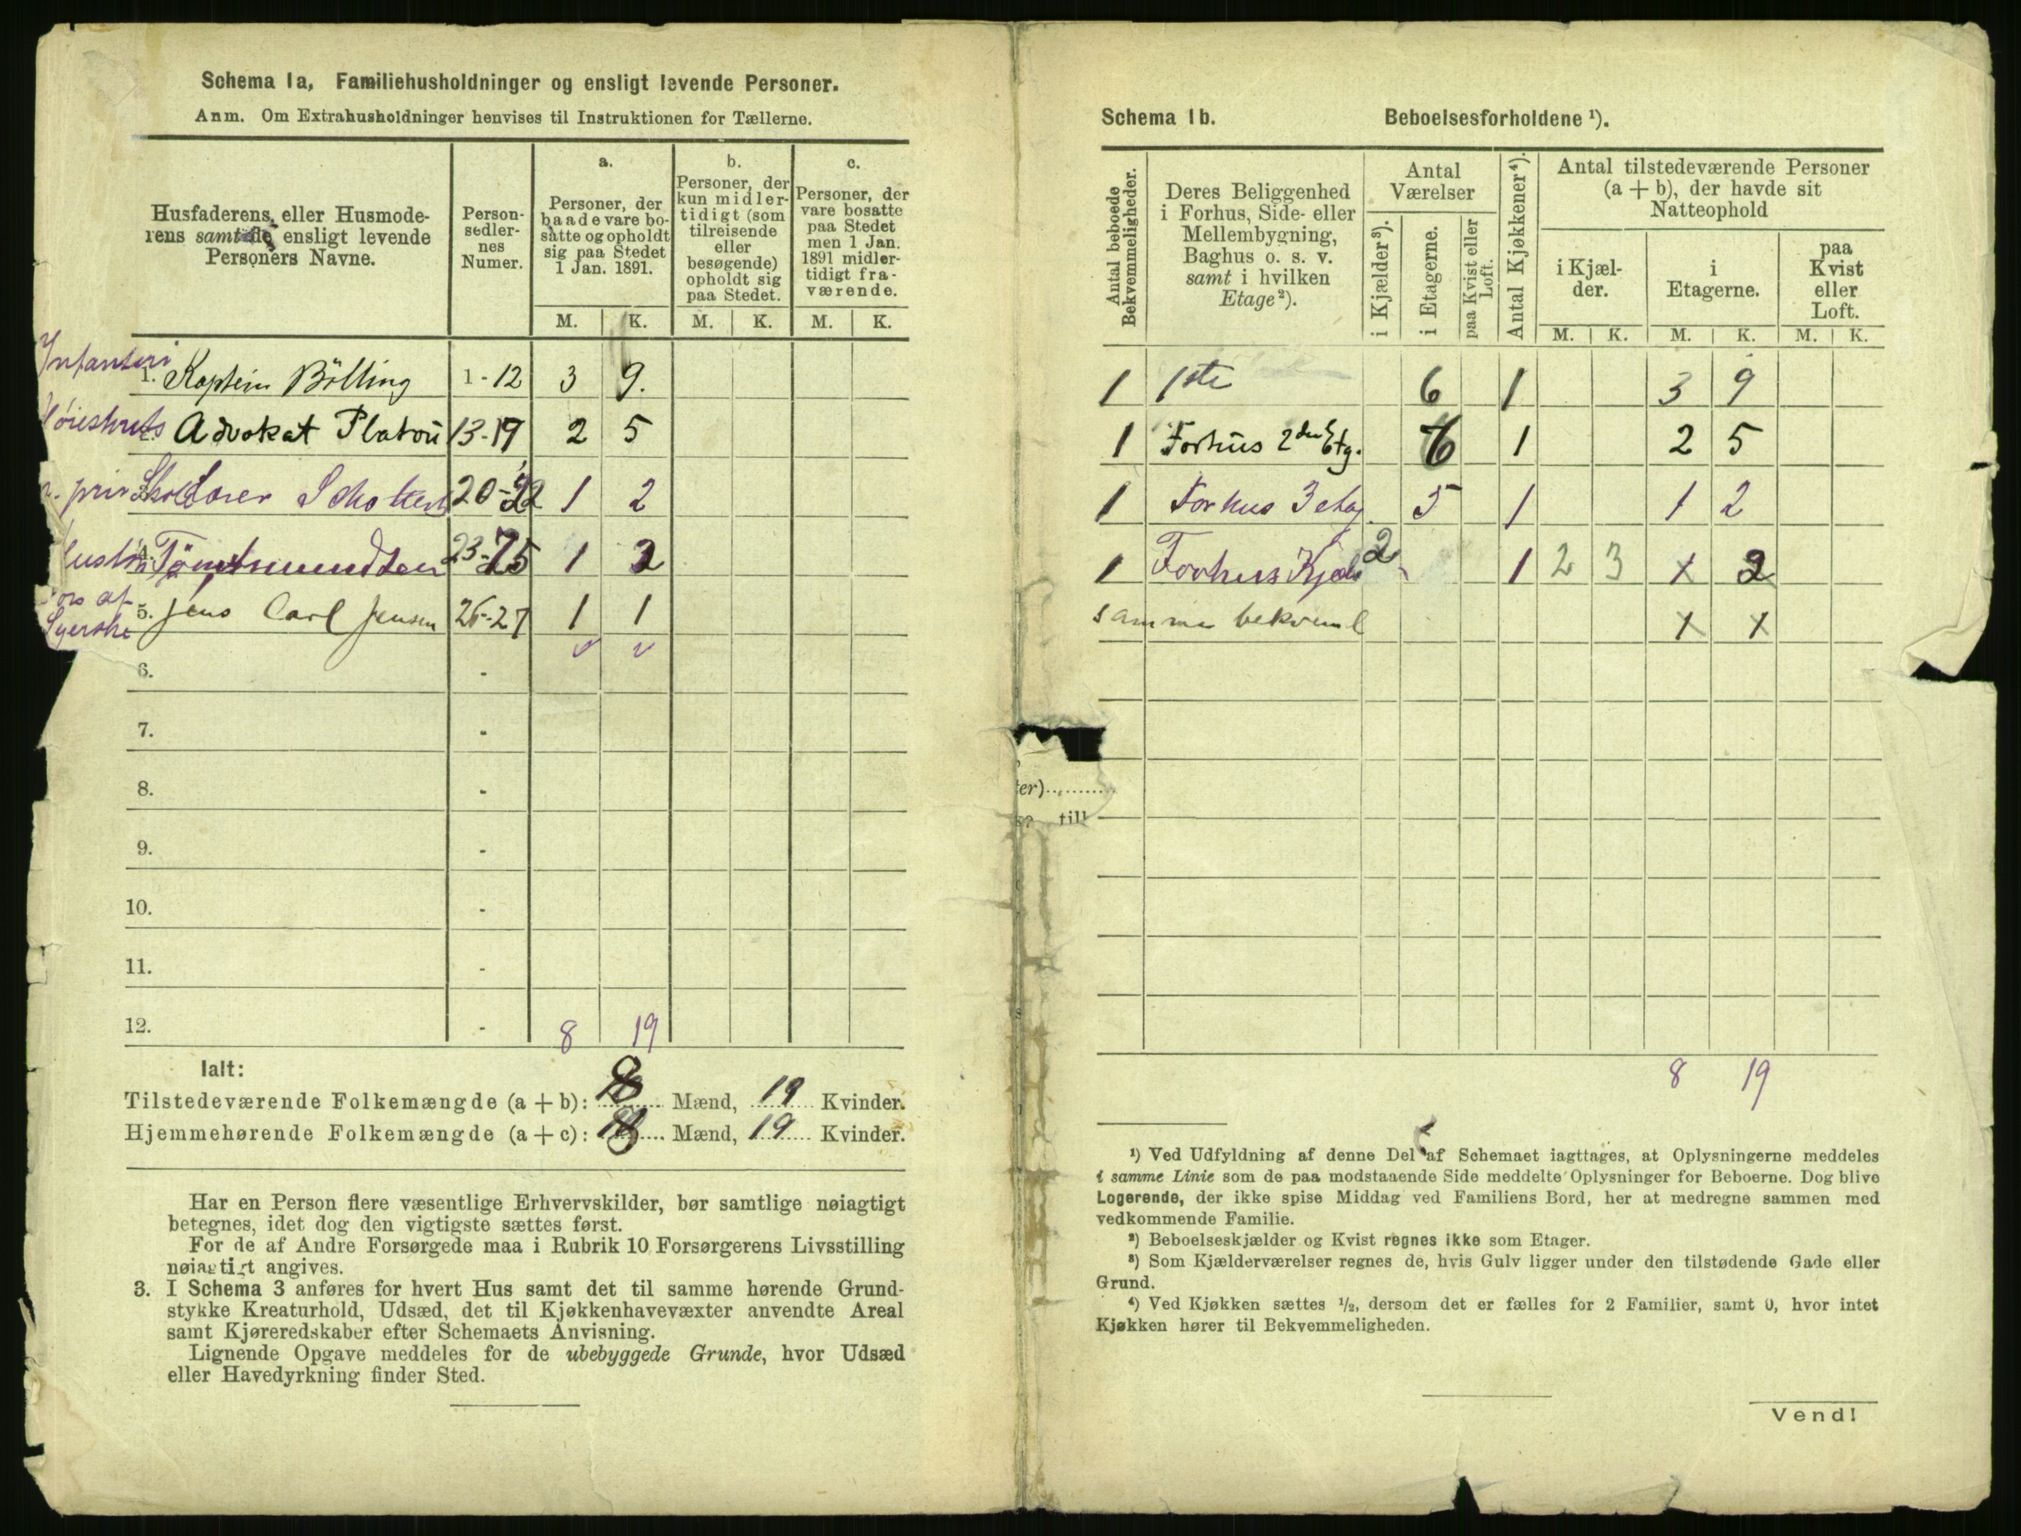 Schema 1a, Familiehusholdninger og ensligt levende Personer.
Anm. Om Extrahusholdninger henvises til Instruktionen for Tællerne.
Husfaderens, eller Husmode-
rens samt de ensligt levende
Personers Navne.
Person-
sedler-
nes
Numer.
a.
Personer, der
baade vare bo-
satte og opholdt
sig paa Stedet
1 Jan. 1891.
b.
Personer, der
kun midler-
tidigt (som
tilreisende
eller
besøgende)
opholdt sig
paa Stedet.
c.
Personer, der
vare bosatte
paa Stedet
men 1 Jan.
1891 midler-
tidigt fra-
værende.
M. K. M. K. M. K.
Infanteri
1. Kaptein Bölling 1-12 3 9.
Advokat Platou 13-19 2 5
20-22 1 2
23-25 1
5. Jens Carl Jensen 26-27 1 1
Syerske
6. -
7. -
8. -
9. -
10. -
11. -
12. - 8 19
Ialt:
Tilstedeværende Folkemængde (a + b): 8 Mænd, 19 Kvinder.
Hjemmehørende Folkemængde (a + c): 8 Mænd, 19 Kvinder.
Har en Person flere væsentlige Erhvervskilder, bør samtlige nøiagtigt
betegnes, idet dog den vigtigste sættes først.
For de af Andre Forsørgede maa i Rubrik 10 Forsørgerens Livsstilling
nøiagtigt angives.
3. I Schema 3 anføres for hvert Hus samt det til samme hørende Grund-
stykke Kreaturhold, Udsæd, det til Kjøkkenhavevæxter anvendte Areal
samt Kjøreredskaber efter Schemaets Anvisning.
Lignende Opgave meddeles for de ubebyggede Grunde, hvor Udsæd
eller Havedyrkning finder Sted.
Schema 1b. Beboelsesforholdene ¹).
Antal beboede
Bekvemmeligheder.
Deres Beliggenhed
i Forhus, Side- eller
Mellembygning,
Baghus o. s. v.
samt i hvilken
Etage²).
Antal
Værelser
i Kjælder³).
i Etagerne.
paa Kvist eller
Loft.
Antal Kjøkkener⁴).
Antal tilstedeværende Personer
(a + b), der havde sit
Natteophold
i Kjæl-
der.
i
Etagerne.
paa
Kvist
eller
Loft.
M. K. M. K. M. K.
1 1ste 6 1 3 9
1 Forhus 2den Etg. 6 1 2 5
1 Forhus 3 etag. 5 1 1 2
1 Forhus Kjæl 2 1 2 3 1 2
samme bekveml 1 1
8 19
ter)
till
¹) Ved Udfyldning af denne Del af Schemaet iagttages, at Oplysningerne meddeles
i samme Linie som de paa modstaaende Side meddelte Oplysninger for Beboerne. Dog blive
Logerende, der ikke spise Middag ved Familiens Bord, her at medregne sammen med
vedkommende Familie.
²) Beboelseskjælder og Kvist regnes ikke som Etager.
³) Som Kjælderværelser regnes de, hvis Gulv ligger under den tilstødende Gade eller
Grund.
⁴) Ved Kjøkken sættes ½, dersom det er fælles for 2 Familier, samt 0, hvor intet
Kjøkken hører til Bekvemmeligheden.
Vend!